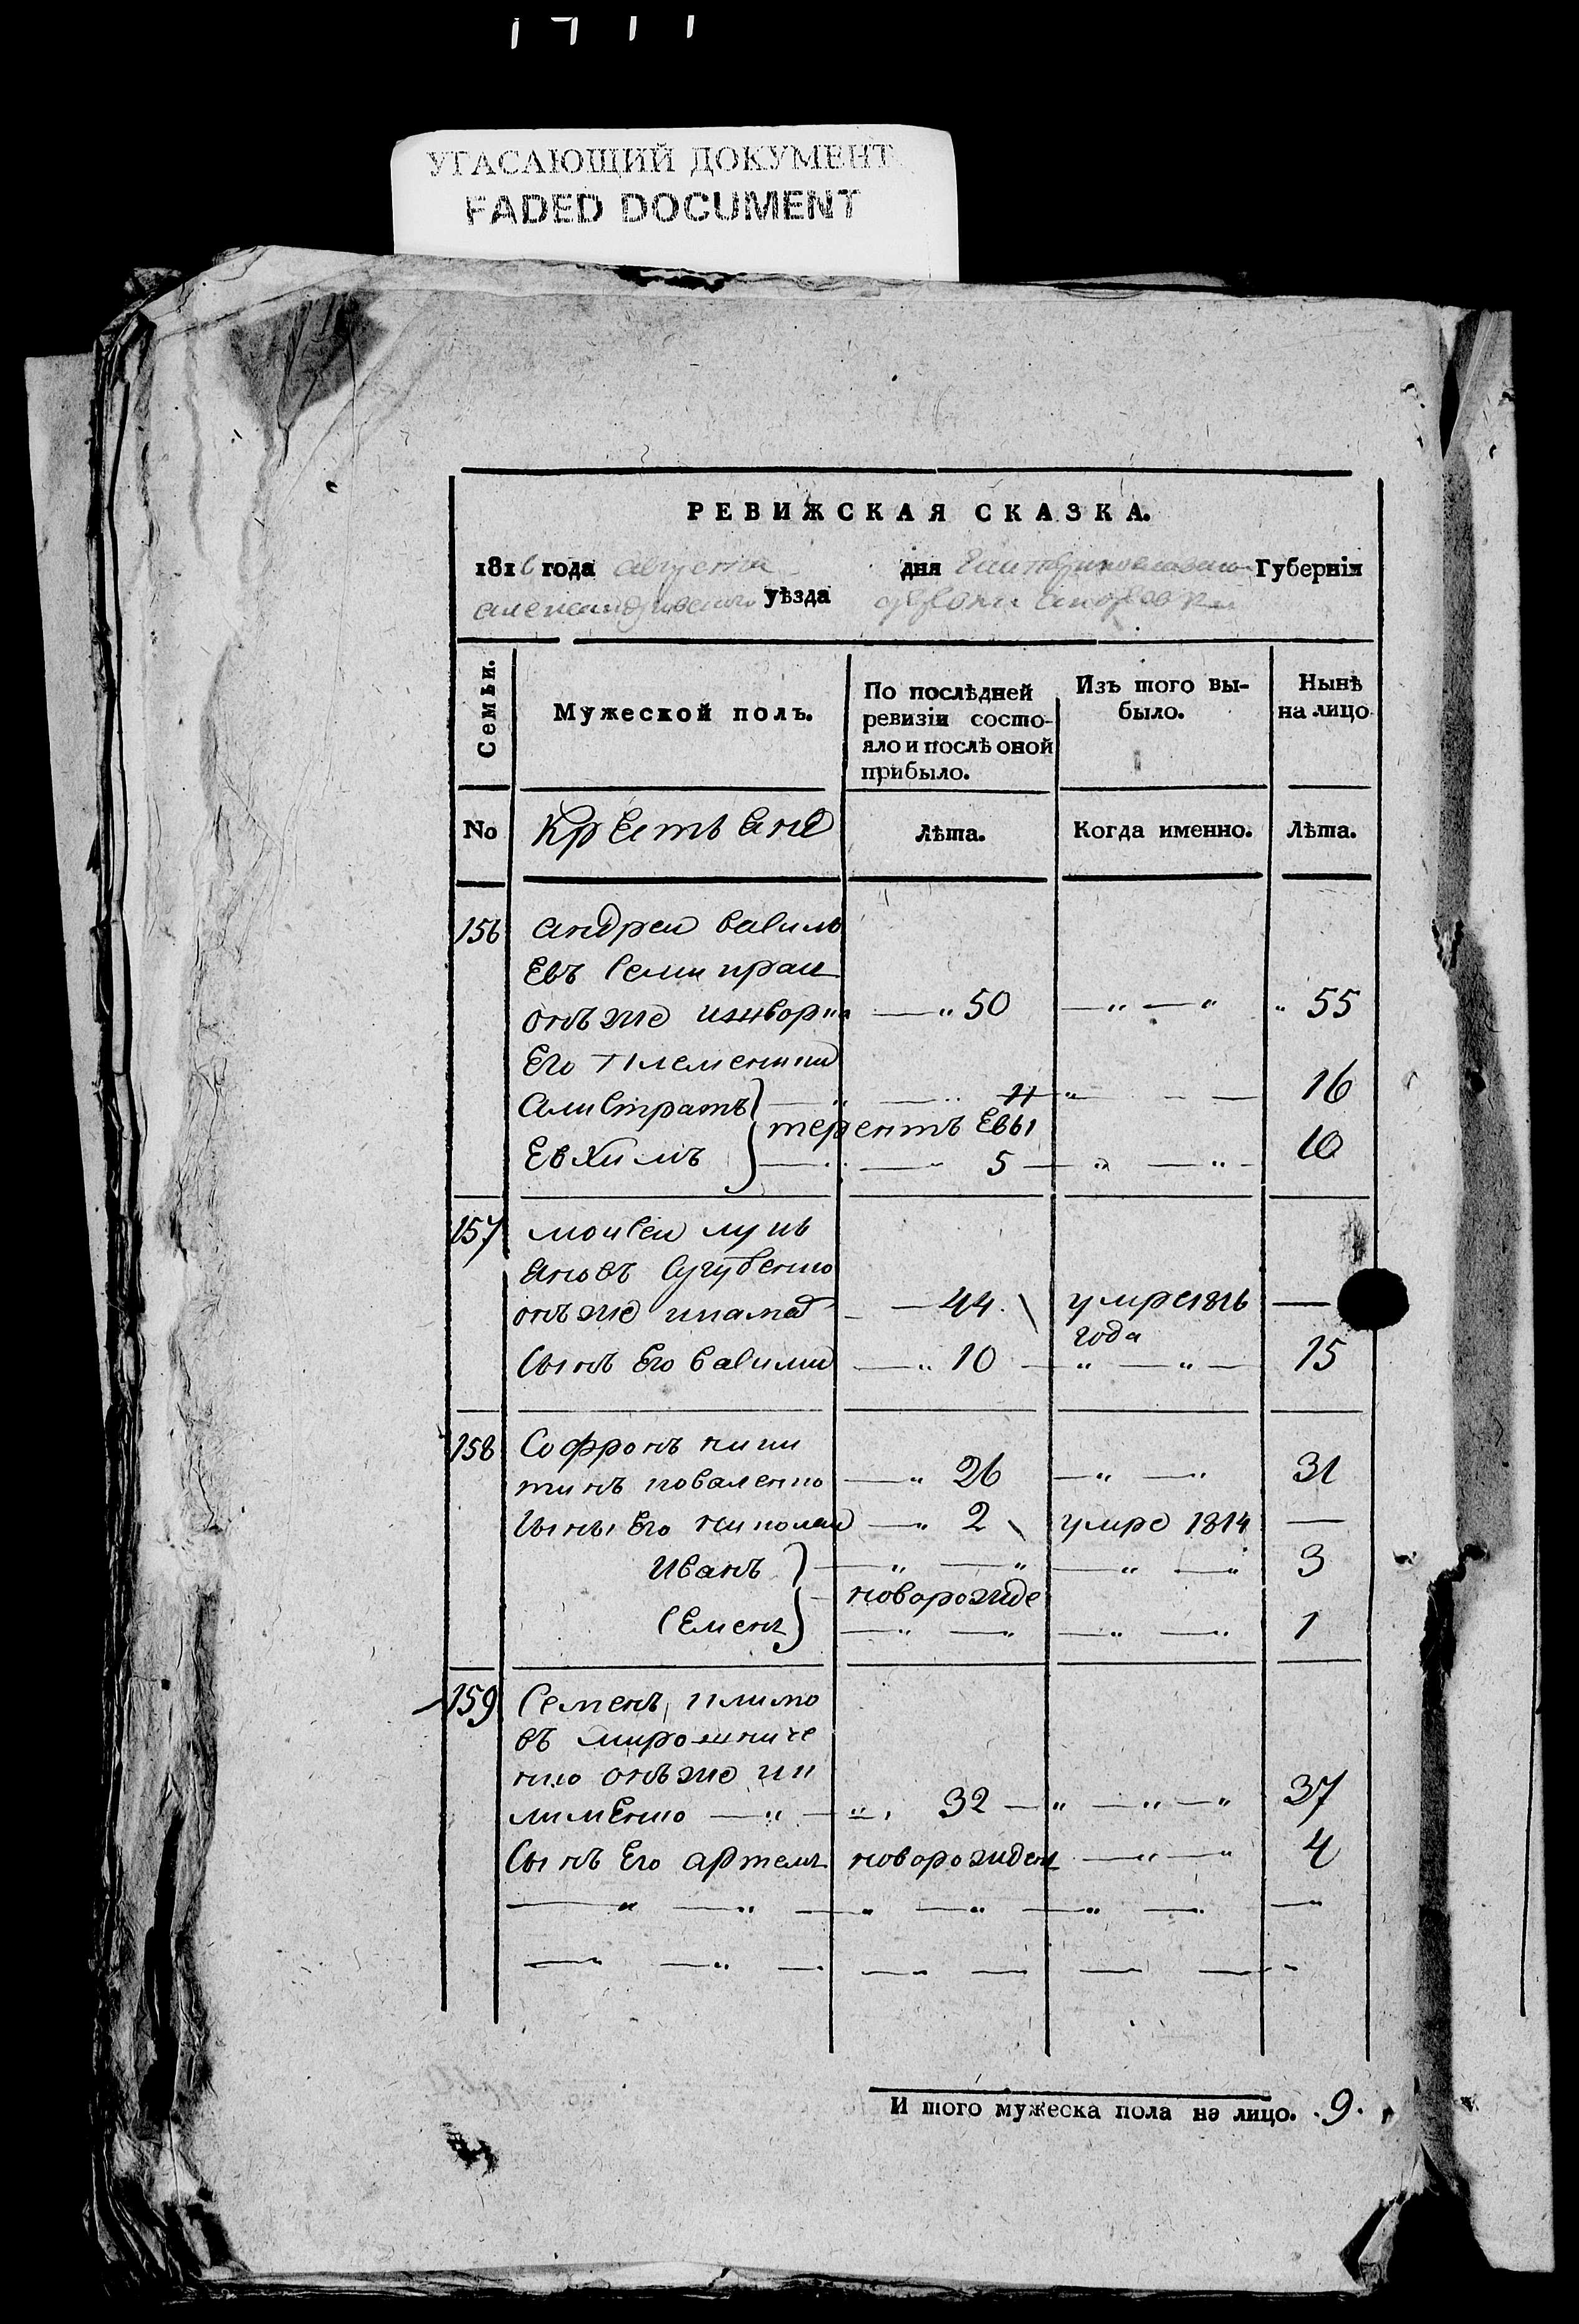 УГАСАЮЩИЙ ДОКУМЕНТ
FADED DOCUMENT
РЕВИЖСКАЯ СКАЗКА.
1816 года августа дня Екатеринославской Губернія
александровского уѣзда
Семьи. Мужеской полъ. По послѣдней ревизіи состояло и послѣ оной прибыло. Изъ того выбыло. Нынѣ на лицо
No Крестьяне Лѣта. Когда именно. Лѣта.
156 андреи васильевъ
онъже 50 55
Его племенники
Алистратъ 11 16
терентьевы
Евхимъ 5 10
157 моисеи лукьяновъ
Сугубенко
онъже 44 умре 1816 года
Сынъ Его василии 10 15
158 Софронъ никитинъ
коваленко 26 31
Сыны Его николаи 2 умре 1814
Иванъ 3
новорожде
Семенъ 1
159 Семенъ климовъ
мирошниченко онъже
клименко 32 37
Сынъ Его артемъ новорожден 4
И того мужеска пола на лицо. 9.